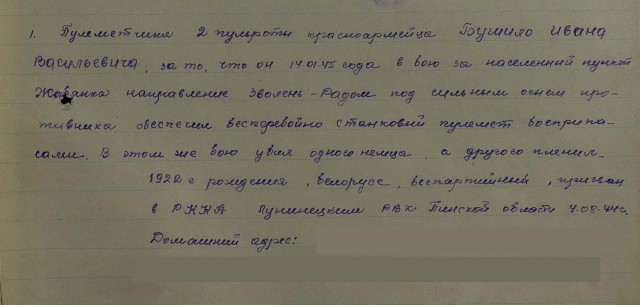 1. Пулеметчика 2 пульроты красноармейца Бушило Ивана
Васильевича, за то, что он 14.01.45 года в бою за населенный пункт
направление Зволень-Радом под сильным огнем про-
тивника обеспечил бесперебойно станковый пулемет боеприпа-
сами. В этом же бою убил одного немца, а другого пленил.
1922 г рождения, белорусс, беспартийный, призван
в РККА Лунинецким РВК Пинской области 4.08.44г.
Домашний адрес: